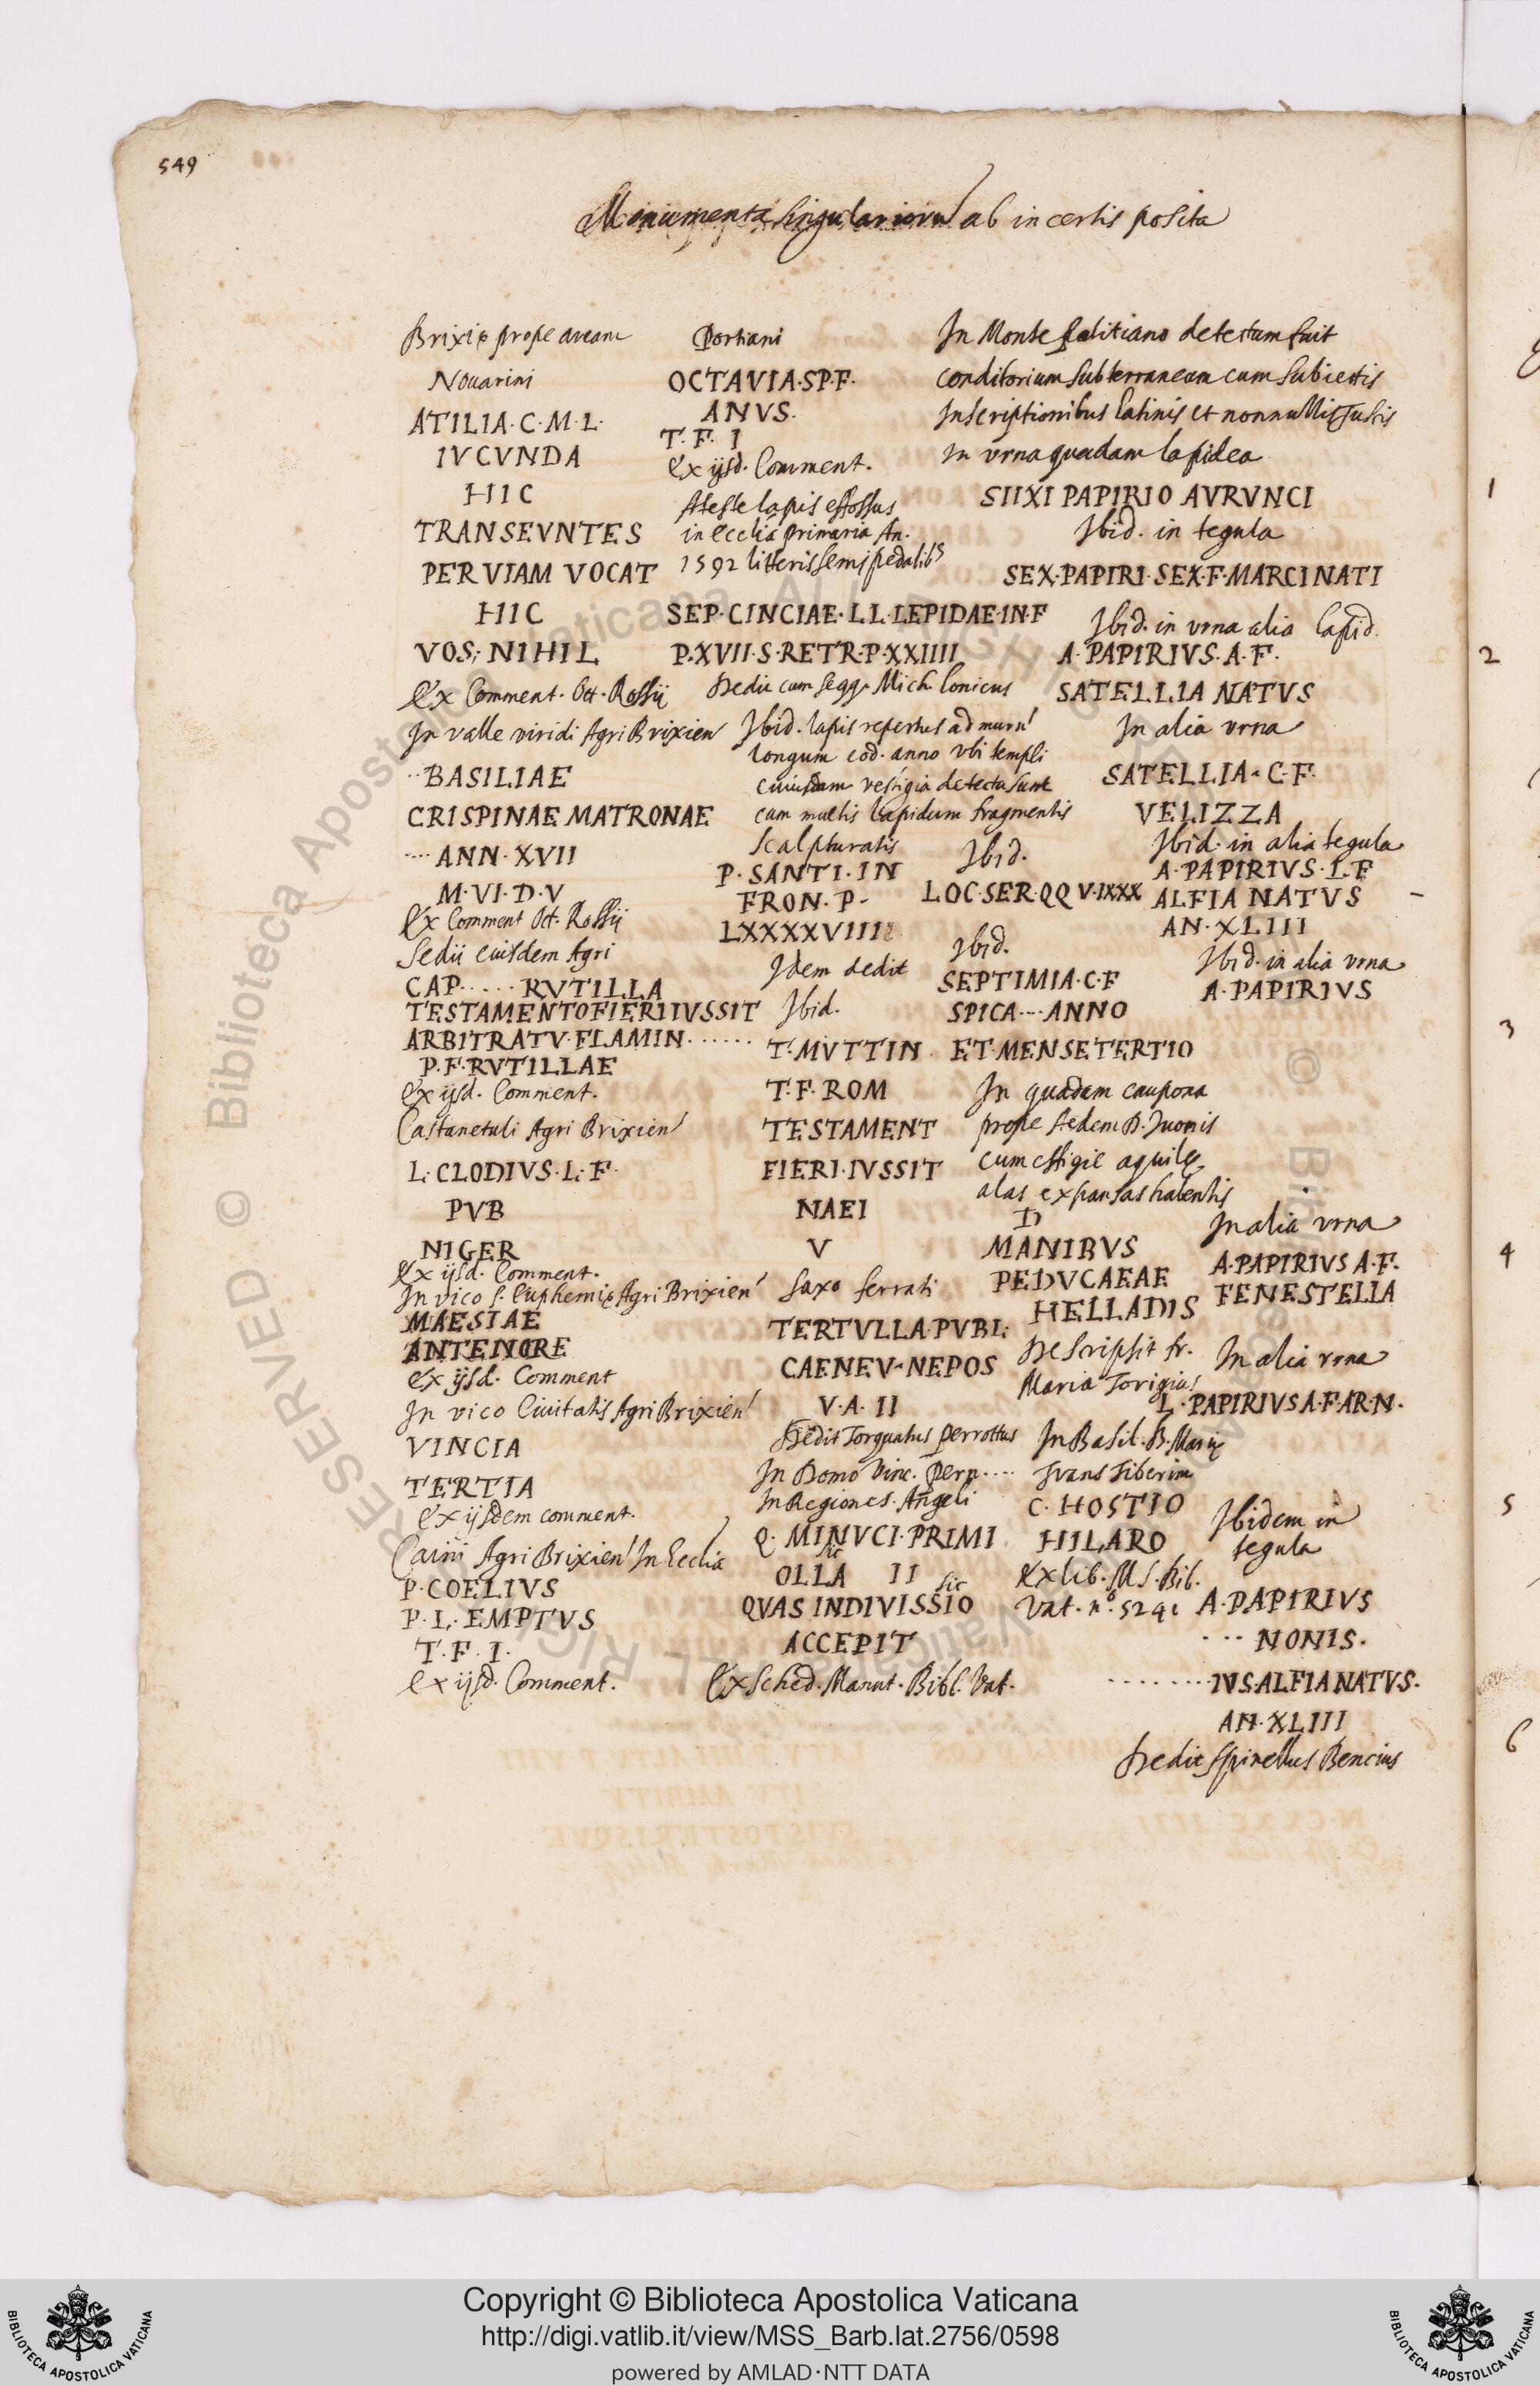 549
Monumenta singulariorū ab incertis posita
Brixię prope aream
Nouarini
ATILIA·C·M·L·
IVCVNDA
HIC
TRANSEVNTES
PER VIAM VOCAT
HIC
VOS; NIHIL
Ex Comment. Oct. Rossij
In valle viridi Agri Brixien
··BASILIAE
CRISPINAE MATRONAE
····ANN·XVII
M·VI·D·V
Ex Comment Oct. Rossij
Sedii eiusdem Agri
CAP·····RVTILLA
TESTAMENTOFIERIIVSSIT
ARBITRATV·FLAMIN······
P·F·RVTILLAE
ex ijsd. Comment.
Castanetuli Agri Brixien
L·CLODIVS·L·F·
PVB
NIGER
Ex ijsd. Comment.
In vico S. Euphemię Agri Brixien
MAESIAE
ANTENORE
ex ijsd. Comment
In vico Ciuitatis Agri Brixien
VINCIA
TERTIA
ex ijsdem comment.
Caini Agri Brixien In Ecclia
P·COELIVS
P·L·EMPTVS
T·F·I·
ex ijsd. Comment.
Portiani
OCTAVIA·SP·F·
ANVS·
T·F·I
ex ijsd. Comment.
Ateste lapis effossus
in ecclia primaria An.
1592 litteris semipedalib9
SEP·CINCIAE·L·L·LEPIDAE·IN·F
P·XVII·S·RETR·P·XXIIII
Dedit cum seqq. Mich. Lonicus
Ibid. lapis repertus ad murū
longum eod. anno vbi templi
cuiusdam vestigia detecta sunt
cum multis lapidum fragmentis
scalpturatis
P·SANTI·IN
FRON·P-
LXXXXVIIII
Idem dedit
Ibid.
T·MVTTIN
T·F·ROM
TESTAMENT
FIERI·IVSSIT
NAEI
V
Saxo ferrati
TERTVLLA·PVBL·
CAENEV·NEPOS
V·A·II
Dedit Torquatus Perrottus
In Domo Vinc. Pern····
In Regione S. Angeli
Q·MINVCI·PRIMI
sic
OLLA II
sic
QVAS INDIVISSIO
ACCEPIT
Ex Sched. Manut. Bibl. Vat.
Ibid.
LOC·SER·QQ V·IXXX
Ibid.
SEPTIMIA·C·F
SPICA····ANNO
ET·MENSETERTIO
In quadam caupona
prope Aedem D. Iuonis
cum effigie aquilę
alas expansas habentis
D
MANIBVS
PEDVCAEAE
HELLADIS
Descripsit fr.
Maria Torigius
In Basil. B. Marię
Trans Tiberim
C·HOSTIO
HILARO
Ex lib. MS. Bib.
Vat. n.º 5241
In Monte Politiano detectum fuit
conditorium subterraneum cum subiectis
Inscriptionibus latinis et nonnullis Tuscis
In vrna quadam lapidea
SIIXI PAPIRIO AVRVNCI
Ibid. in tegula
SEX·PAPIRI·SEX·F·MARCINATI
Ibid. in vrna alia lapid.
A·PAPIRIVS·A·F·
SATELLIA NATVS
In alia vrna
SATELLIA·C·F·
VELIZZA
Ibid. in alia tegula
A·PAPIRIVS·L·F
ALFIA NATVS
AN·XLIII
Ibid. in alia vrna
A·PAPIRIVS
In alia vrna
A·PAPIRIVS A·F·
FENESTELLA
In alia vrna
L·PAPIRIVS A·F·AR·N·
Ibidem in
tegula
A·PAPIRIVS
···NONIS·
········IVS·ALFIANATVS·
AN·XLIII
Dedit Spinellus Bencius
1
2
3
4
5
6
Copyright © Biblioteca Apostolica Vaticana
http://digi.vatlib.it/view/MSS_Barb.lat.2756/0598
powered by AMLAD·NTT DATA